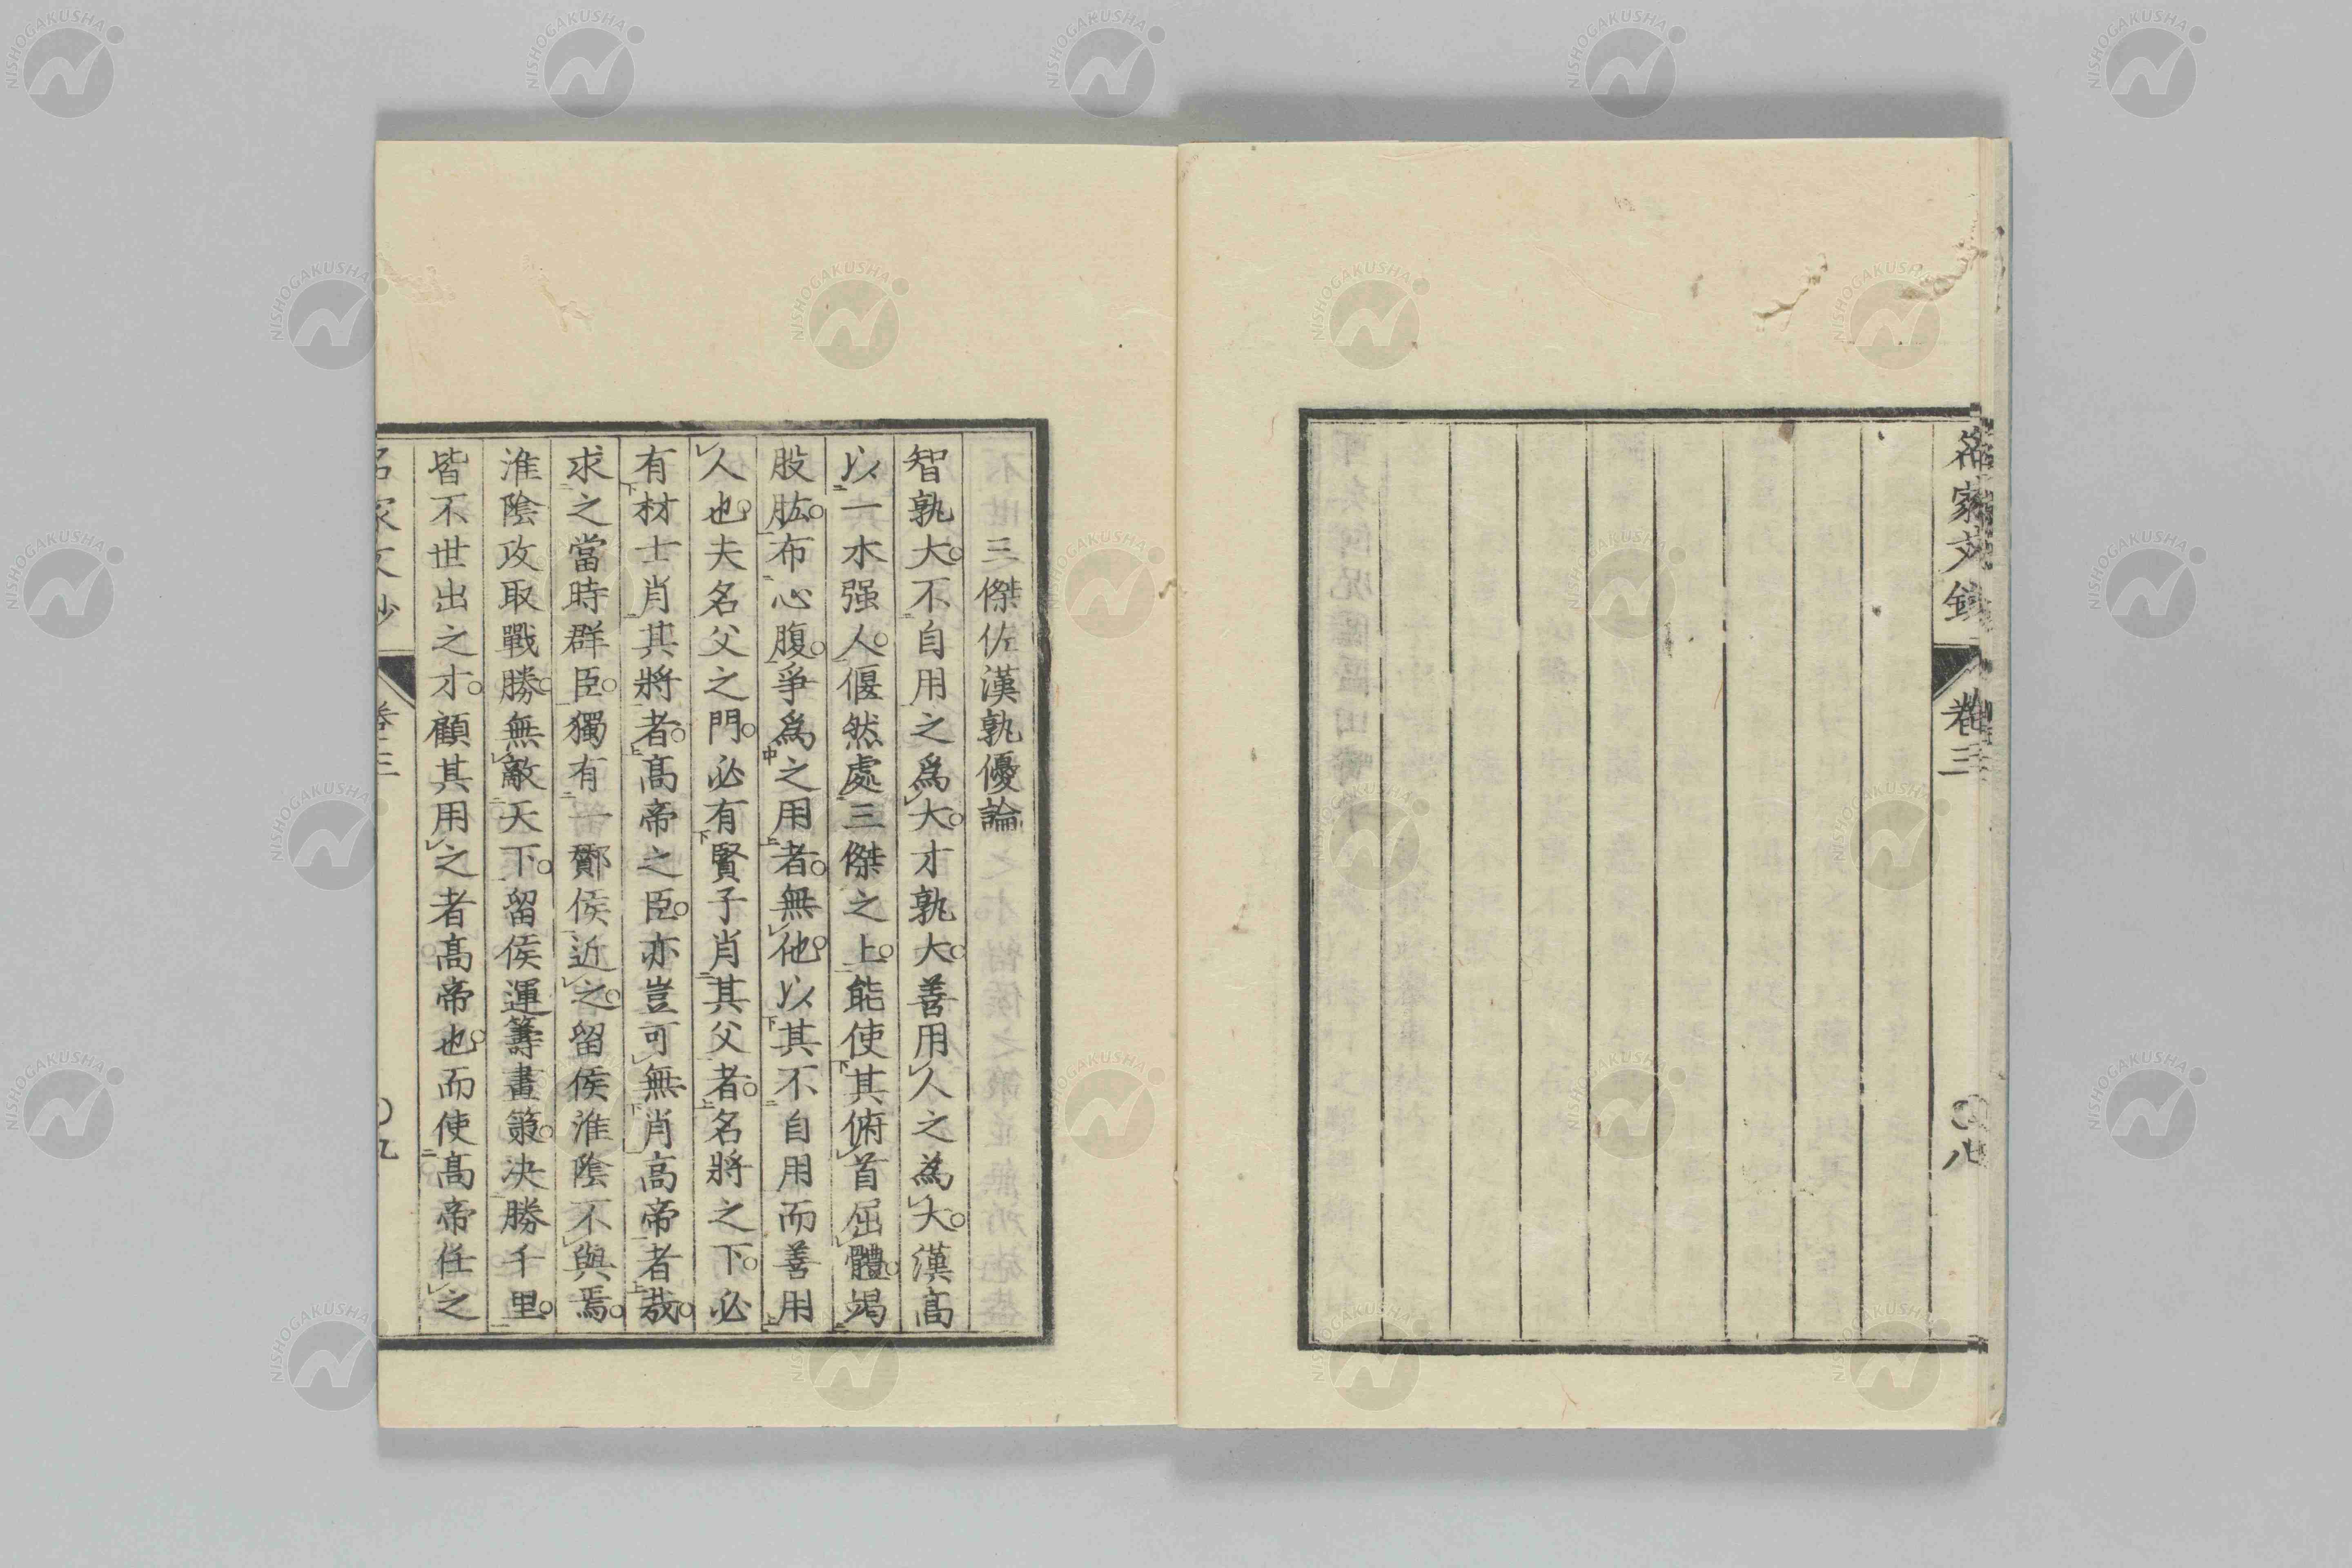 名家文鈔
卷三
〇八
三傑佐漢孰優論
智孰大。不自用之爲大。才孰大。善用人之爲大。漢高
以一木强人。偃然處三傑之上。能使其俯首屈體。竭
股肱。布心腹。爭爲之用者。無他。以其不自用而善用
人也。夫名父之門。必有賢子肖其父者。名將之下。必
有材士肖其將者。高帝之臣。亦豈可無肖高帝者哉。
求之當時群臣。獨有一酇侯近之。留侯淮陰不與焉。
淮陰攻取戰勝。無敵天下。留侯運籌畫策。决勝千里。
皆不世出之才。顧其用之者高帝也。而使高帝任之
名家文鈔
卷三
〇九
NISHOGAKUSHA